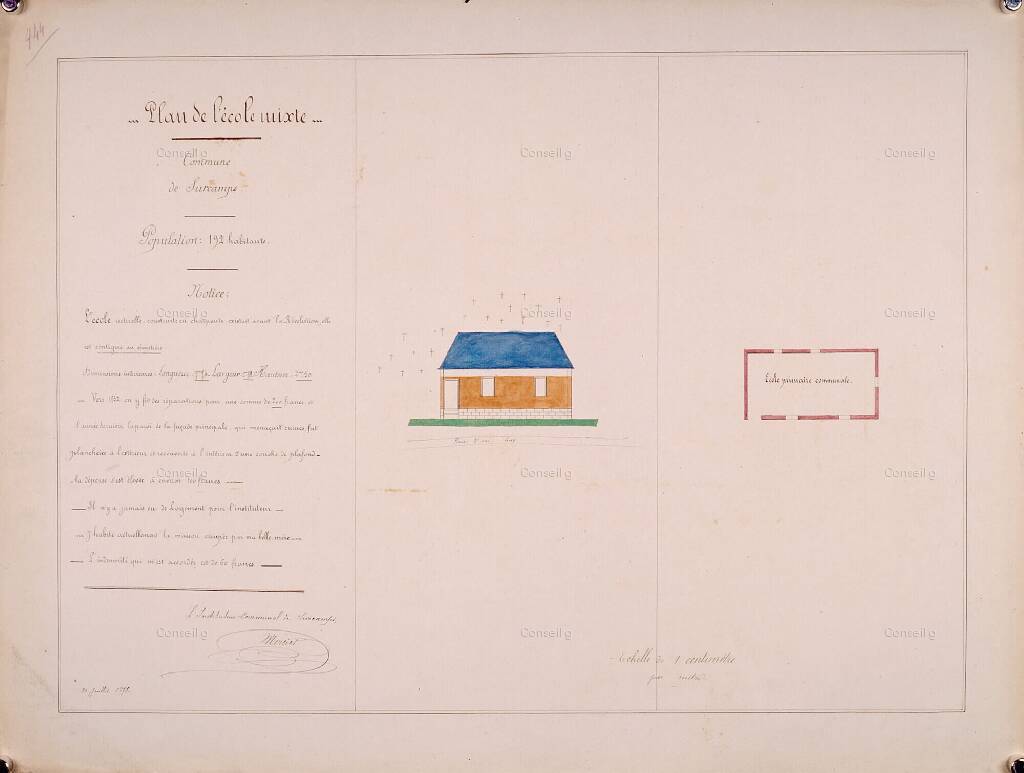 444
Plan de l'école mixte
Commune
de Surcamps
Population : 192 habitants.
Notice :
L'école actuelle, construite en charpente, existait avant la Révolution, elle
est contigüe au cimetière
Dimensions intérieures : Longueur Largeur Hauteur
Vers 18 on y fit des réparations pour une somme de 200 francs, et
l'année dernière la paroi de la façade principale, qui menaçait ruines, fut
planchéiée à l'extérieur et recouverte à l'intérieur d'une couche de plafond
La dépense s'est élevée à environ 160 francs
Il n'y a jamais eu de Logement pour l'instituteur
J'habite actuellement la maison occupée par ma belle mère
L'indemnité qui m'est accordée est de 60 francs
L'Instituteur communal de Surcamps,
juillet
Ecole primaire communale.
Echelle de 1 centimètre
par mètre
Conseil g
Conseil g
Conseil g
Conseil g
Conseil g
Conseil g
Conseil g
Conseil g
Conseil g
Conseil g
Conseil g
Conseil g